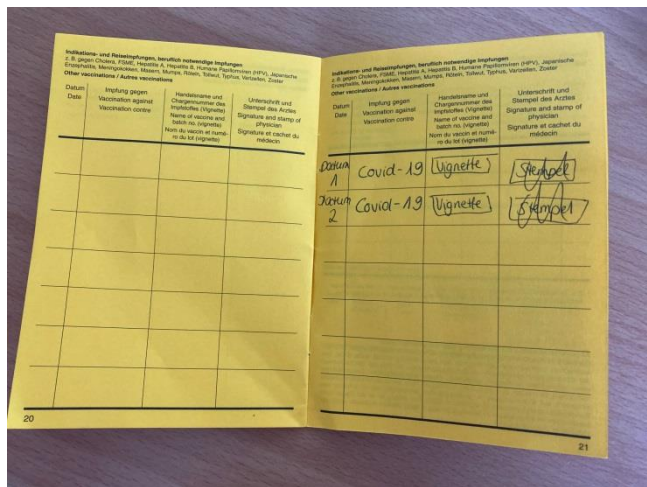 Indikations- und Reiseimpfungen, beruflich notwendige Impfungen
z. B. gegen Cholera, FSME, Hepatitis A, Hepatitis B, Humane Papillomviren (HPV), Japanische
Enzephalitis, Meningokokken, Masern, Mumps, Röteln, Tollwut, Typhus, Varizellen, Zoster
Other vaccinations / Autres vaccinations
Datum
Date
Impfung gegen
Vaccination against
Vaccination contre
Handelsname und
Chargennummer des
Impfstoffes (Vignette)
Name of vaccine and
batch no. (vignette)
Nom du vaccin et numé-
ro du lot (vignette)
Unterschrift und
Stempel des Arztes
Signature and stamp of
physician
Signature et cachet du
médecin
20
Indikations- und Reiseimpfungen, beruflich notwendige Impfungen
z. B. gegen Cholera, FSME, Hepatitis A, Hepatitis B, Humane Papillomviren (HPV), Japanische
Enzephalitis, Meningokokken, Masern, Mumps, Röteln, Tollwut, Typhus, Varizellen, Zoster
Other vaccinations / Autres vaccinations
Datum
Date
Impfung gegen
Vaccination against
Vaccination contre
Handelsname und
Chargennummer des
Impfstoffes (Vignette)
Name of vaccine and
batch no. (vignette)
Nom du vaccin et numé-
ro du lot (vignette)
Unterschrift und
Stempel des Arztes
Signature and stamp of
physician
Signature et cachet du
médecin
Datum 1 Covid-19 Vignette Stempel
Datum 2 Covid-19 Vignette Stempel
21